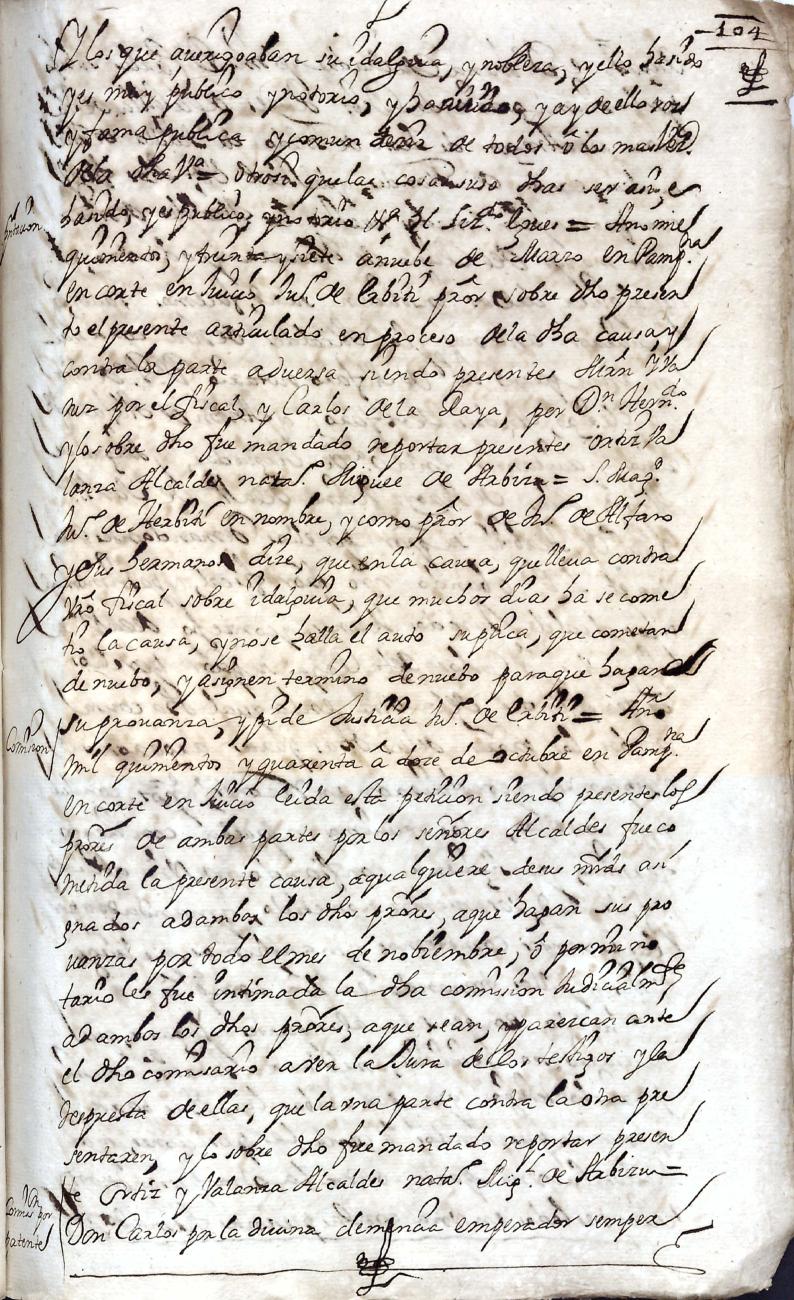 104
Y los que averigoaban su idalguia, y nobleza, y ello ha sido
y es muy público y notorio, y ha avido, y ay de ello voz
y fama publica y comun dezir de todos ô los mas
de la dha V.ª = otrosi que las cosas suso dhas ser asi, e
hando, y es publico, y notorio = Año mil
quinientos, y treinta y siete â nuebe de Marzo en Pamp.na
en corte en Juicio Ju.º de Erbiti prõr sobre dho presen
to el presente articulado en proceso de la dha causa, y
contra la parte adversa siendo presentes
por el fiscal, y Carlos de la Raya, por D.n Hern.do
y lo sobre dho fue mandado reportar presentes ortiz Va
lanza Alcaldes nata.º Miguel de Arbizu = S. Mag.d
Ju.º de Herbiti en nombre, y como prõr de Ju.º de Alfaro
y sus hermanos dize, que en la causa, que lleva contra
vrõ fiscal sobre idalguia, que muchos dias ha se come
tio la causa, y no se halla el auto suplica, que cometan
de nuebo, y asignen termino de nuebo para que hagan
su provanza, y pi de Justicia Ju.º de Erbiti = Año
Mil quinientos y quarenta â doze de octubre en Pamp.na
en corte en Juicio leida esta peticion siendo presentes los
prõres de ambas partes por los señores Alcaldes fue co
metida la presente causa, a qualquiere de sus mrãs asi
gnados ad ambos los dhos prõres, a que hagan sus pro
vanzas por todo el mes de nobiembre, ô por mi no
tario les fue intimada la dha comision Judicialm.te
ad ambos los dhos prõres, a que vean, y parezcan ante
el dho comisario a ver la Jura de los testigos y la
respuesta de ellas, que la vna parte contra la otra pre
sentaren, y lo sobre dho fue mandado reportar presen
te Ortiz y Valanza Alcaldes nata.º Mig.l de Arbizu =
Comision
Comis.on por
patente
Don Carlos por la divina clemencia emperador semper